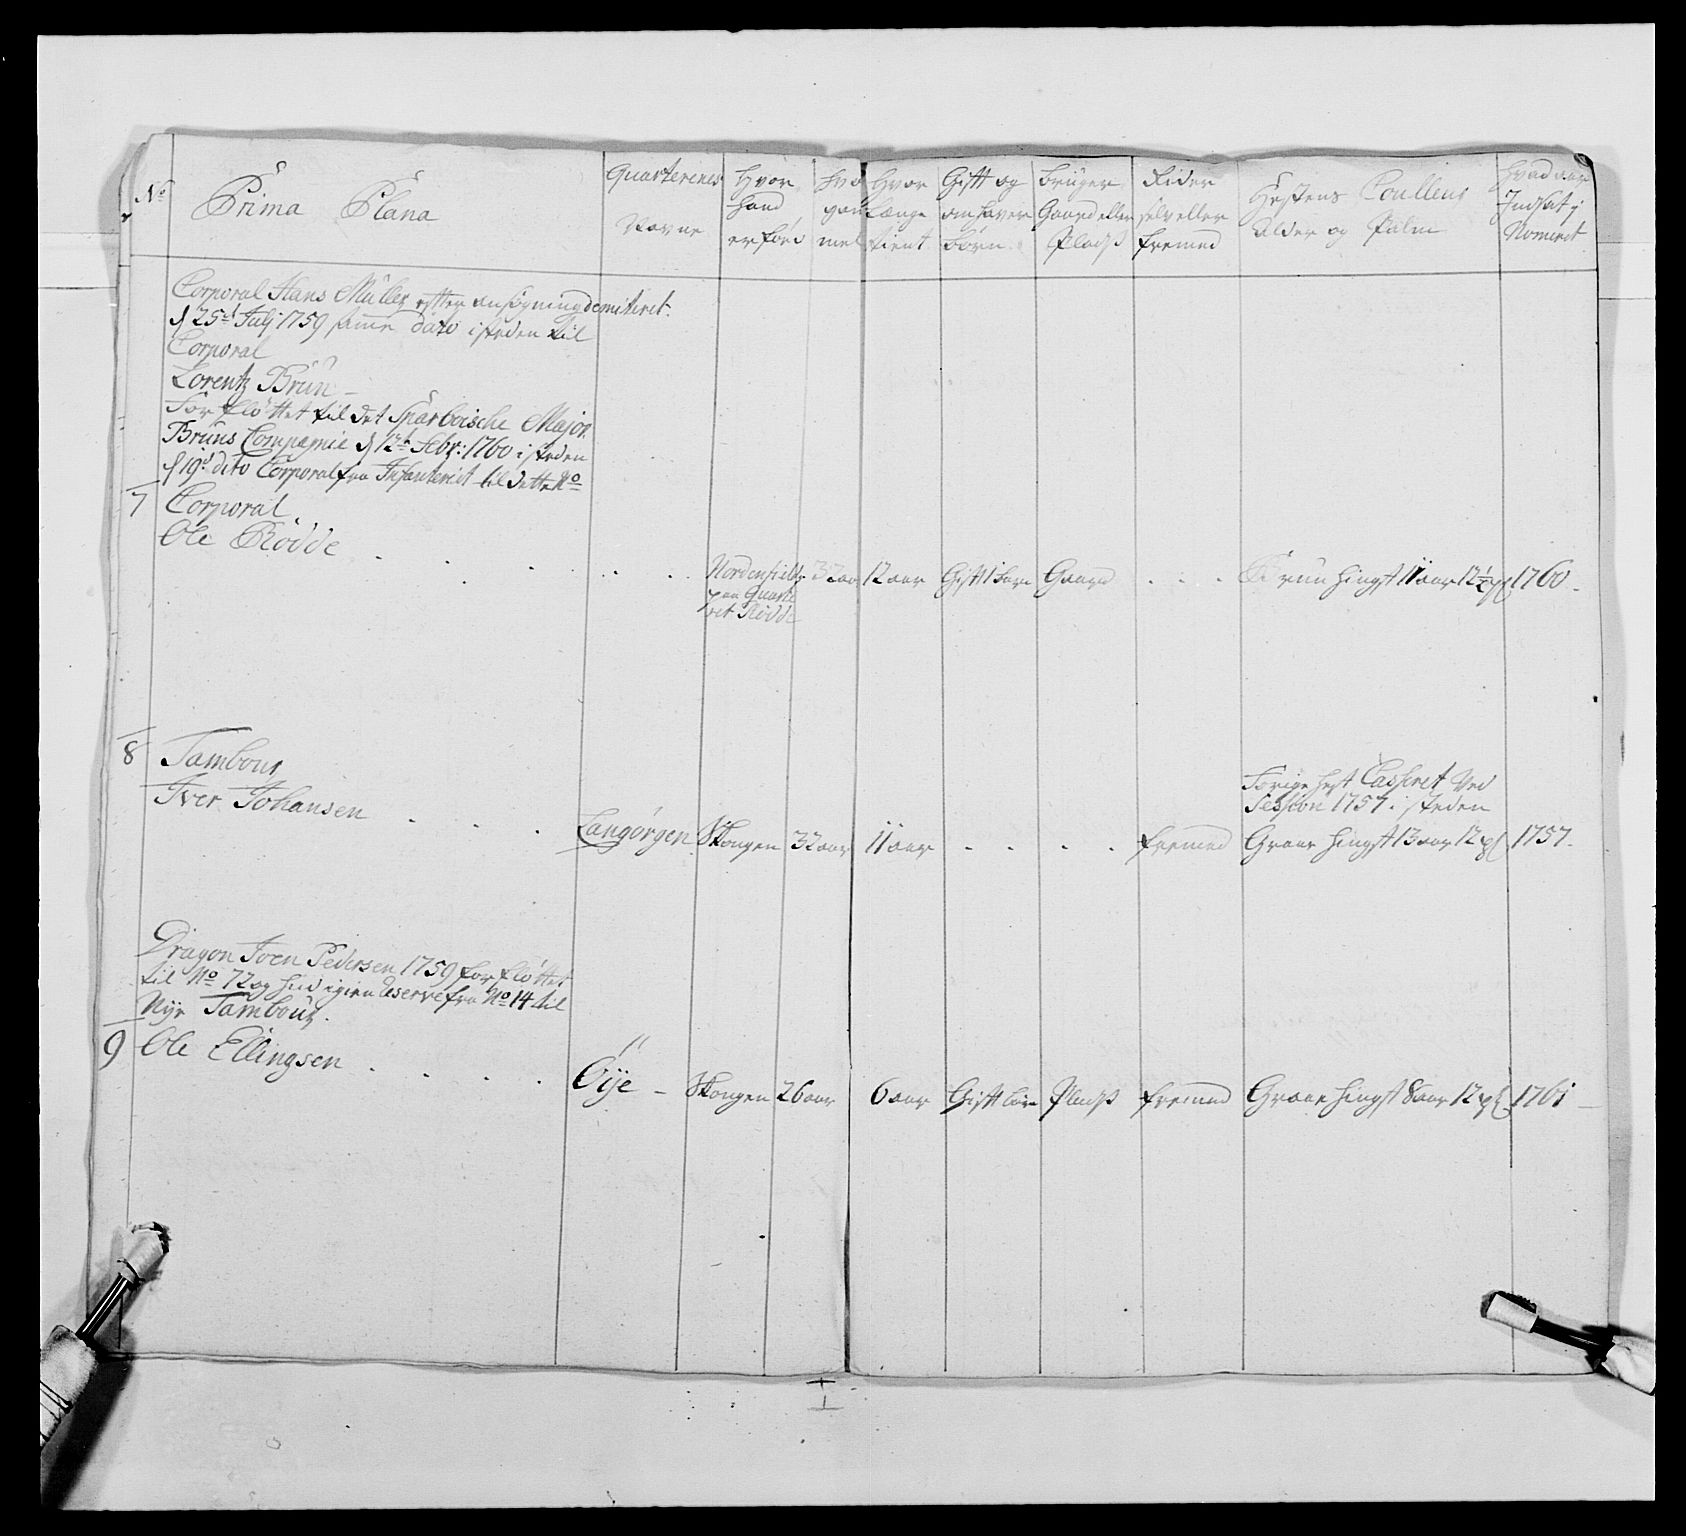 No
Prima Plana
Quarterenes Navne
Hvor hand er föd
hvor gammel
Hvor Længe tient
Gift og om haver börn
bruger Gaard eller Pladß
Rider selv eller fremed
Hestens Coulleur Alder og Palm
Hvad aar Indsat j Nomeret
Corporal Hans Müller efter ansögning demiteret
d 25d Julj 1759 samme dato i steden til
Corporal
Lorentz Brun
Forfløttet til det Sparboische Major
Bruns Compagnie d 12t Febr: 1760 i steden
d 19d dito Corporal fra Infanteriet til dette No
7 Corporal
Ole Rödde . . . . . . . Nordenfields paa Quarteret Rödde 32 aar 12 aar Gift 1 barn Gaard . . . Brun hingst 11 aar 12½ pl 1760
8 Tambour
Iver Johansen . . . Langörgen Skougen 32 aar 11 aar . . . . fremed
Forige hest Casseret Ved
Session 1757 i steden
Graae hingst 13 aar 12 pl 1757
Dragon Joen Pedersen 1759 forfløttet
til No 72 og hid igien Reserve fra No 14 til
Nye Tambour
9 Ole Ellingsen . . . . Öye Skougen 26 aar 6 aar Gift Pladß fremed Graae hingst 8 aar 12 pl 1761